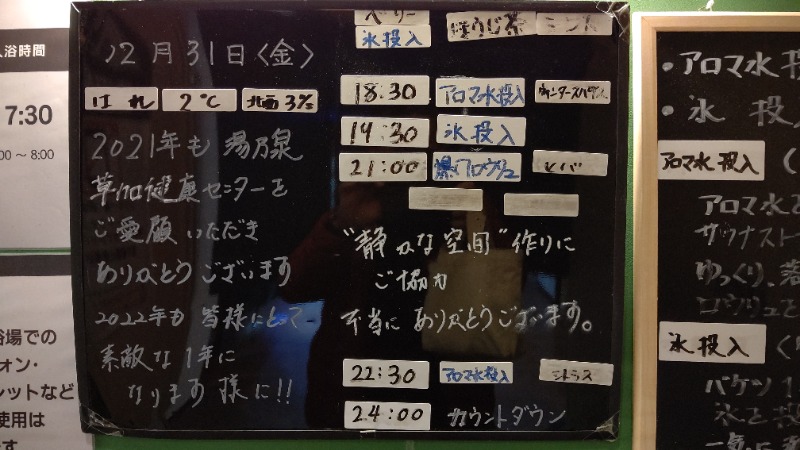 入浴時間
7:30
00 ~ 8:00
浴場での
オン・
レットなど
使用は
です
12月31日〈金〉
はれ 2℃ 北西 3%
2021年も 湯乃泉
草加健康センターを
ご愛願いただき
ありがとうございます
2022年も 皆様にとって
素敵な1年に
なります様に!!
ベリー ほうじ茶 ミント
氷投入
18:30 アロマ水投入
19:30 氷投入
21:00 爆アロウリュ ヒバ
"静かな空間"作りに
ご協力
本当に ありがとうございます。
22:30 アロマ水投入 シトラス
24:00 カウントダウン
・アロマ水投
・氷 投
アロマ水投入
アロマ水と
サウナスト
ゆっくり、落
ロウリュと
氷 投入
バケツ1
氷を投
一気に